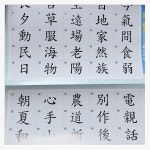 氣問食弱
地家然族
遠場老陽
草服海物
夕動民日
電話
別作後
農道所
心手
朝夏和